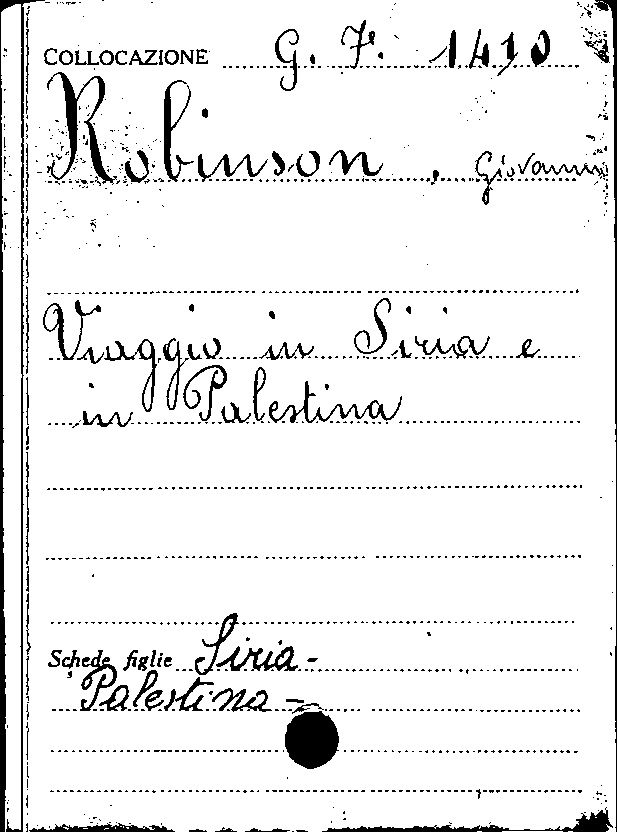 COLLOCAZIONE G. F. 1410
Robinson, Giovanni
Viaggio in Siria e
in Palestina
Schede figlie Siria -
Palestina -